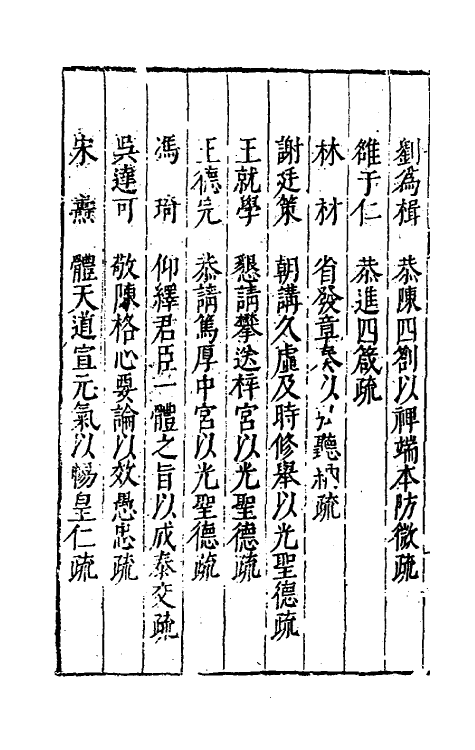 劉為楫　恭陳四劄以裨端本防微疏
雒于仁　恭進四箴疏
林　材　省發章奏以公聽納疏
謝廷策　朝講久虛及時修舉以光聖德疏
王就學　懇請攀送梓宮以光聖德疏
王德元　恭請篤厚中宮以光聖德疏
馮　琦　仰繹君臣一體之旨以成泰交疏
吳達可　敬陳格心要論以效愚忠疏
宋　燾　體天道宣元氣以暢皇仁疏